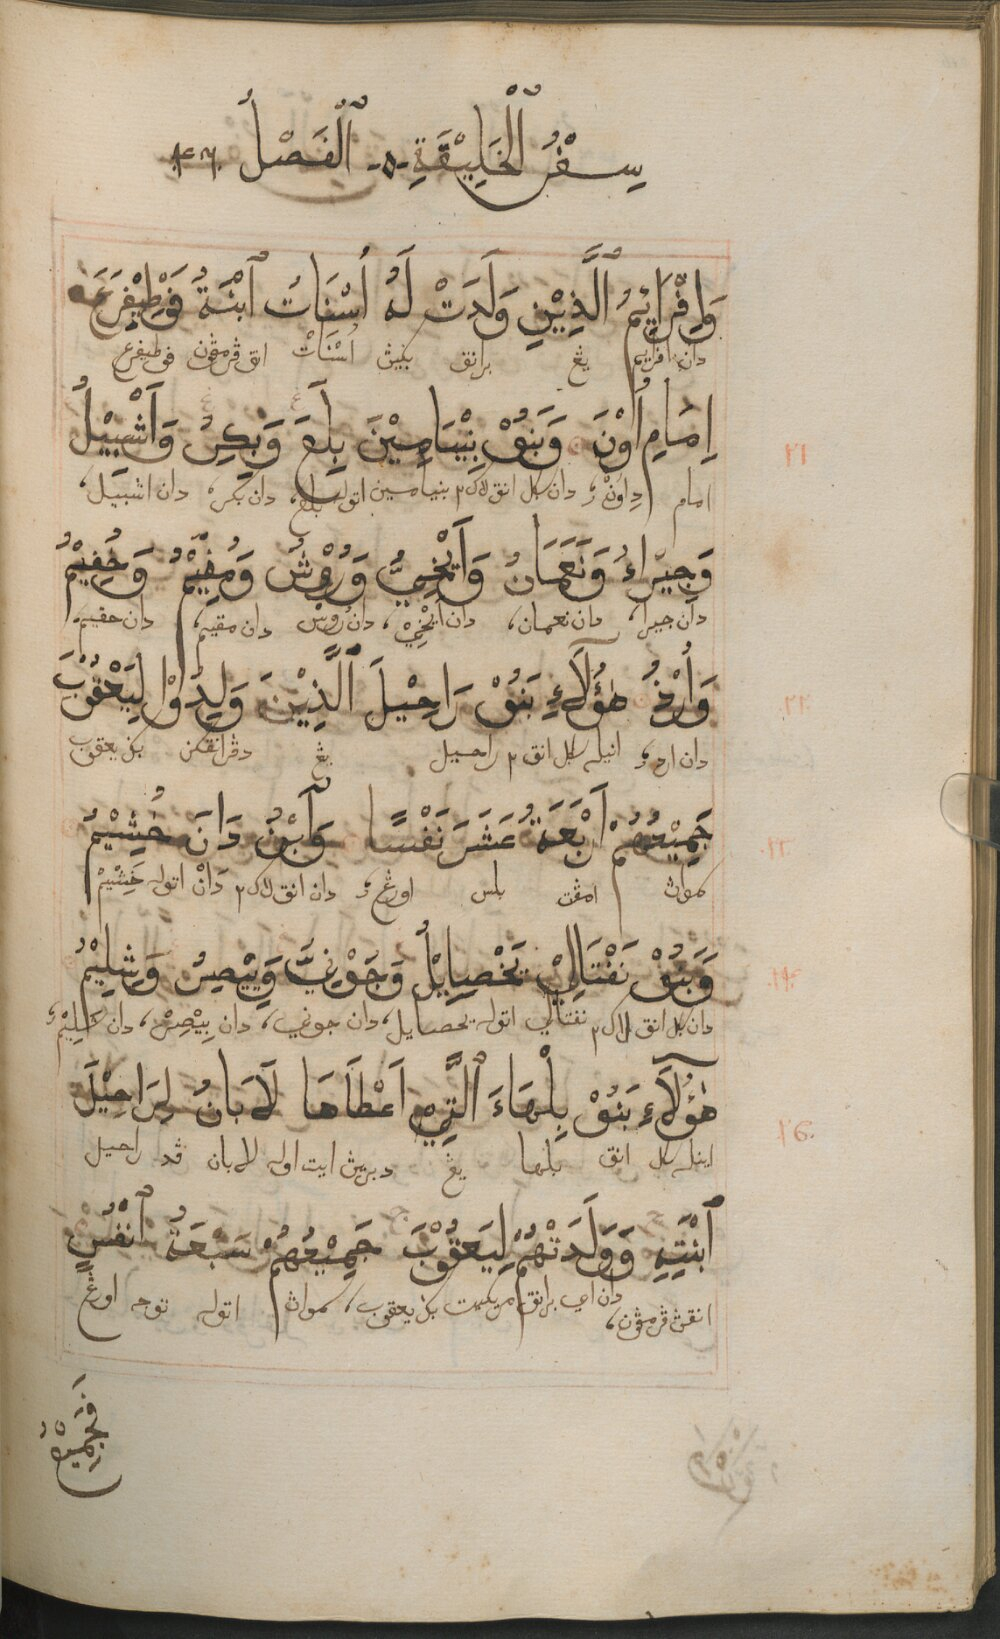 سِفْرُ ٱلْخَلِيْقَةِ ٱلْفَصْلُ ٤٦
وَاِفْرَايِمُ ٱلَّذِيْنِ وَلَدَتْ لَهُ أُسْنَاتُ ٱبْنَةُ فَوْطِيْفِرَعَ
دان افرايم يڠ برانق بڬيڽ أسْنَاتْ انق ڤرمڤون فوطيفرع
اِمَامِ أُوْنَ وَبَنُوْ بِنْيَامِيْنَ بِلَعَ وَبِكِرُ وَأَشْبِيْلُ
امام داون دان سكل انق لاك٢ بنيامين اتوله بلع، دان بكر، دان اشبيل،
وَجِيْرَاءُ وَنَعَمَانُ وَأَيْخِيُّ وَرُوْشُ وَمُفِيْمُ وَحُفِيْمُ
دان جيرا، دان نعمان، دان أيْخِيْ، دان رُوش دان مڤيم، دان حڤيم
وَأُرْدُ هٰؤُلَآءِ بَنُوْ رَاحِيْلَ ٱلَّذِيْنَ وَلِدُوْا لِيَعْقُوْبَ
دان ارد، انيله سكل انق٢ راحيل يڠ دڤرانقكن بڬي يعقوب
جَمِيْعُهُمْ أَرْبَعَةُ عَشَرَ نَفْسًا وَٱبْنُ دَانَ حُشِيْمُ
سموان امڤت بلس اورڠ، دان انق لاك٢ دَانْ اتوله حَشِيْمْ
وَبَنُوْ نَفْتَالِيْ يَحْصِايِلُ وَجَوْنِيُّ وَيِيْصِرُ وَشِلِيْمُ
دان سكل انق لاك٢ نفتالي اتوله يحصايل، دان جوني، دان يِيْصِرْ، دان شِلِيْمْ
هٰؤُلَآءِ بَنُوْ بِلْهَاءَ ٱلَّتِيْ أَعْطَاهَا لَابَانُ لِرَاحِيْلَ
اينله سكل انق بلها يڠ دبريڽ ايت اوله لابان ڤد راحيل
ٱبْنَتِهِ وَوَلَدَتْهُمْ لِيَعْقُوْبَ جَمِيْعُهُمْ سَبْعَةُ أَنْفُسٍ
انقڽ ڤرمڤون، دان اي برانق مريكيت بڬي يعقوب، سموان اتوله توجه اورڠ
فَجَمِيْعُ
٢١
٢٢
٢٣
٢٤
٢٥